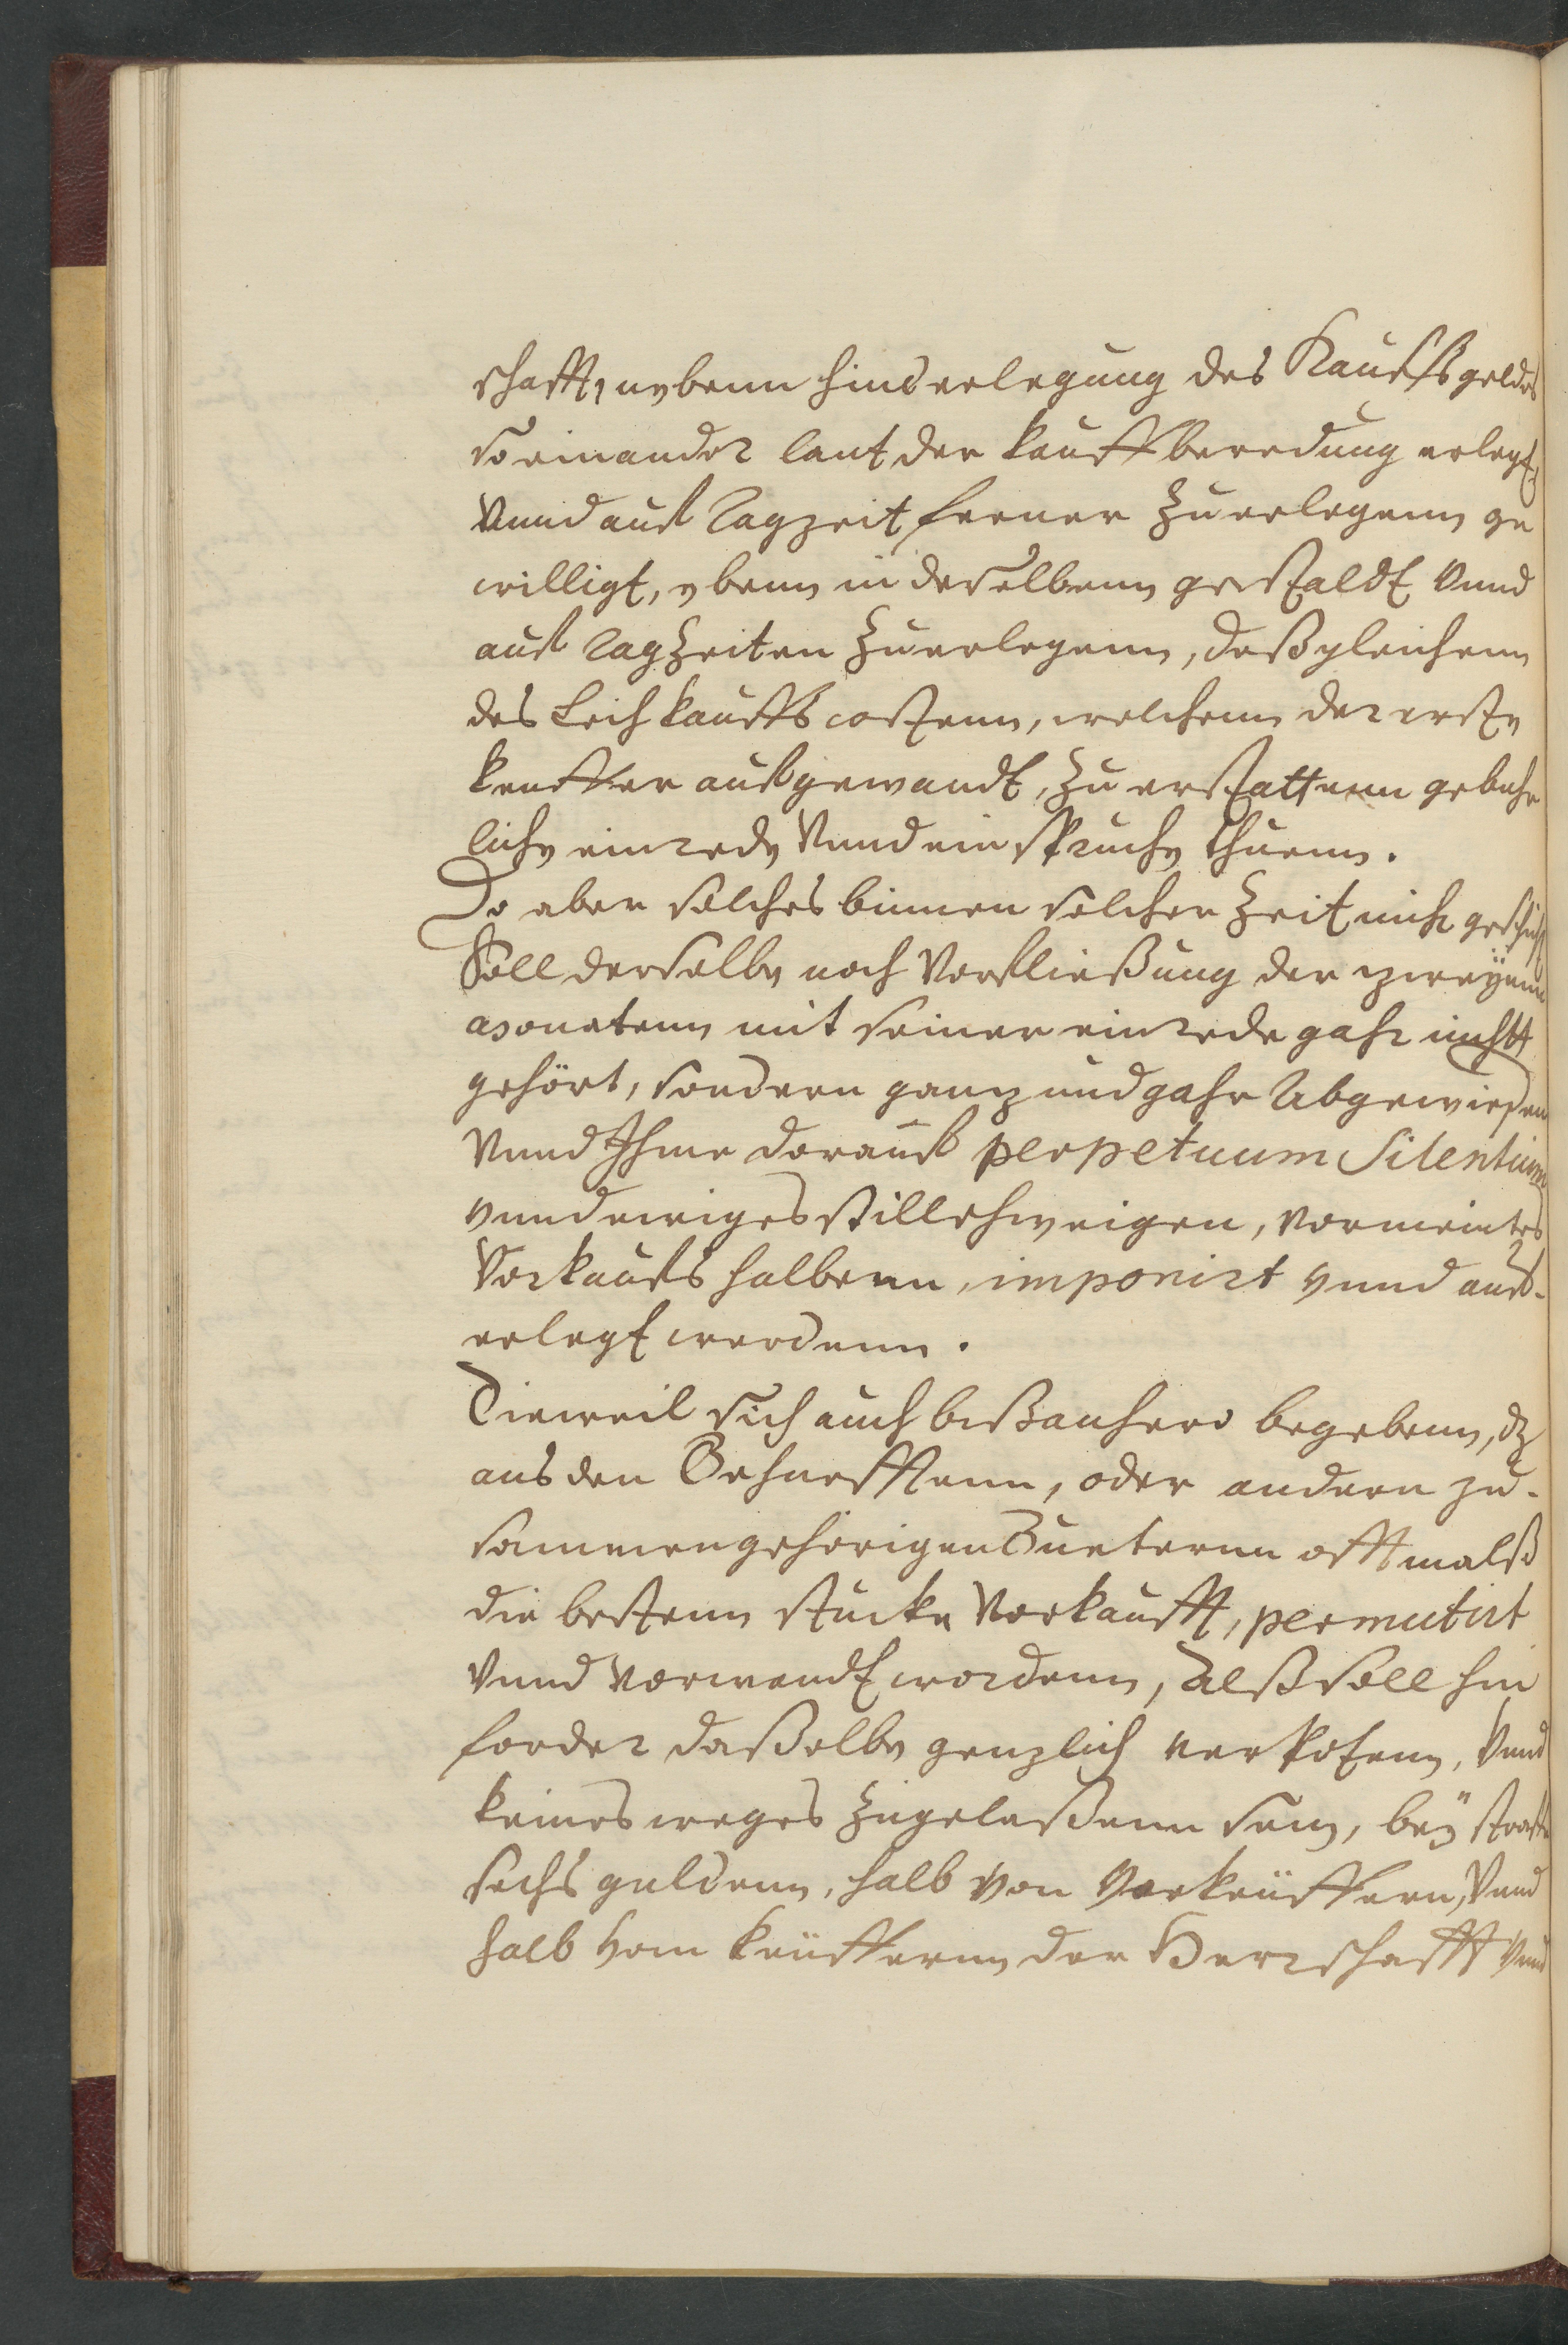 schafft, nebenn hinderlegung des Kauffsgeldes
so einander laut der kauffberedung erlegt,
Vnnd auf Tagzeit ferner Zuerlegenn ge
willigt, ebenn in deselbenn gestaldt Vnnd
auf TagZeiten Zuerlegenn, deßgleichenn
des Leihkauffs costenn, welchenn der erste
keuffer aufgewandt, Zu erstattenn gebuhr
liche einrede Vnnd einspruche thuenn.
Do aber solches binnen solcher Zeit nicht geschicht
Soll derselbe nach Vorfließung der zweÿenn
Monatenn mit seiner einrede gahr nichtt
gehört, sondern ganz und gahr Abgewiesen
Vnnd Ihme darauf perpetuum Silentium
vnnd ewiges stillschweigen, vermeintes
Vorkaufs halbenn, imponirt vnnd auf-
erlegt werdenn.
Dieweil sich auch bißanhero begebenn, dz
aus den Gehueffftenn, oder andern zu-
sammengehörigen Gueternn offtmalß
die bestenn stucke Vorkaufft, permutirt
Vnnd vorwandt wordenn, Alß soll hin
forder daßelbe genzlich verpotenn, Vnnd
keines weges Zugelaßenn sein, beÿ straffe
sechs guldenn, halb von Verkeüffern, Vnnd
halb vom keüffernn der Herrschafft Vnnd